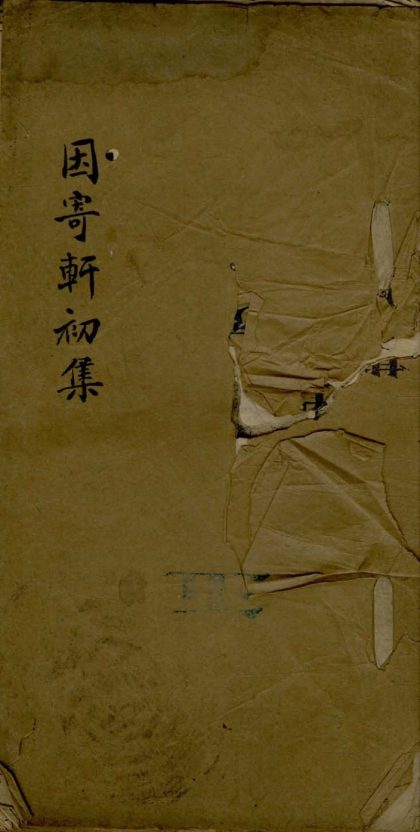 因寄軒初集